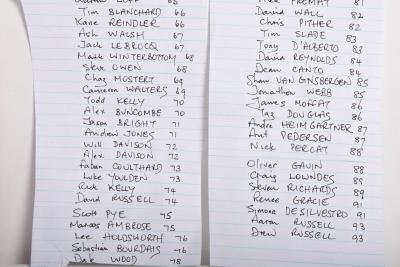 65
Tim BLANCHARD 66
Kane REINDLER 66
Ash WALSH 67
Jack LEBROCQ 67
Mark WINTERBOTTOM 68
Steve OWEN 68
Chaz MOSTERT 69
Cameron WALTERS 69
Todd KELLY 70
Alex BUNCOMBE 70
Jason BRIGHT 71
Andrew JONES 71
Will DAVISON 72
Alex DAVISON 72
Fabian COULTHARD 73
Luke YOULDEN 73
Rick KELLY 74
David RUSSELL 74
Scott PYE 75
Marcos AMBROSE 75
Lee HOLDSWORTH 76
Sebastian BOURDAIS 76
Dale WOOD 78
PREMAT 81
David WALL 82
Chris PITHER 82
Tim SLADE 83
Tony D'ALBERTO 83
David REYNOLDS 84
Dean CANTO 84
Shae VAN GINSBERGEN 85
Jonathon WEBB 85
James MOFFAT 86
Taz DOUGLAS 86
Andre HEIMGARTNER 87
Ant PEDERSEN 87
Nick PERCAT 88
Oliver GAVIN 88
Craig LOWNDES 89
Steven RICHARDS 89
Renee GRACIE 91
Simona DE SILVESTRO 91
Aaron RUSSELL 93
Drew RUSSELL 93